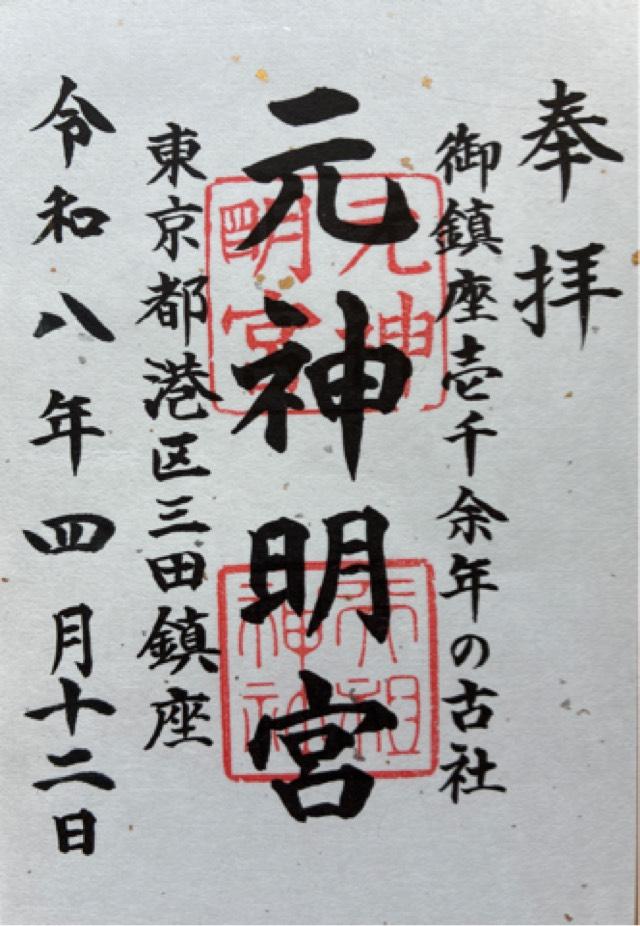 奉拝
御鎮座壱千余年の古社
元神明宮
元神
明宮
東京都港区三田鎮座
令和八年四月十二日